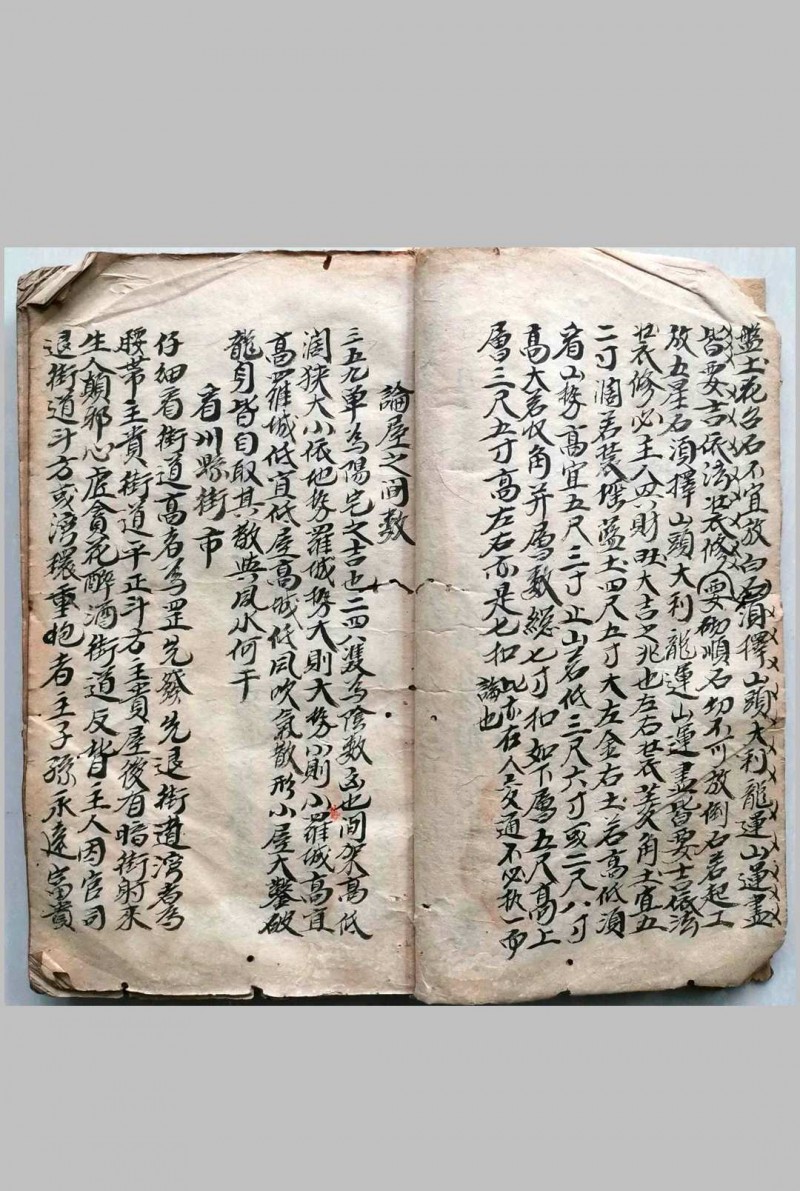 盤土花台石不宜放白石須擇山頭大利龍運山運盡
皆要吉依法裝修要砌順石切不可放倒石若起工
放五星石須擇山頭大利龍運山運盡皆要吉依法
裝修必主人四財旺大吉之兆也左右裝菱角土宜五
二寸濶若裝墀藍土四尺五寸大左金右土若高低須
看山势高宜五尺三寸止山若低三尺六寸或二尺八寸
高大若收角并層数総七寸扣如下層五尺高上
層三尺五寸高左右亦是七扣此亦在人变通不必执一而
論也
論屋之间数
三五九單為陽宅之吉也二四八雙為陰数凶也间架高低
濶狭大小依地势羅城势大則大势小則小羅城高宜
高羅城低宜低屋高城低風吹氣散形小屋大鑿破
龍身皆自取其敗與風水何干
看州縣街市
仔細看街道高者為罡先發先退街道湾者為
腰帯主貴街道平正斗方主貴屋後有暗街射来
生人顛邪心虚貪花醉酒街道反背主人因官司
退街道斗方或湾環重抱者主子孫永遠富貴